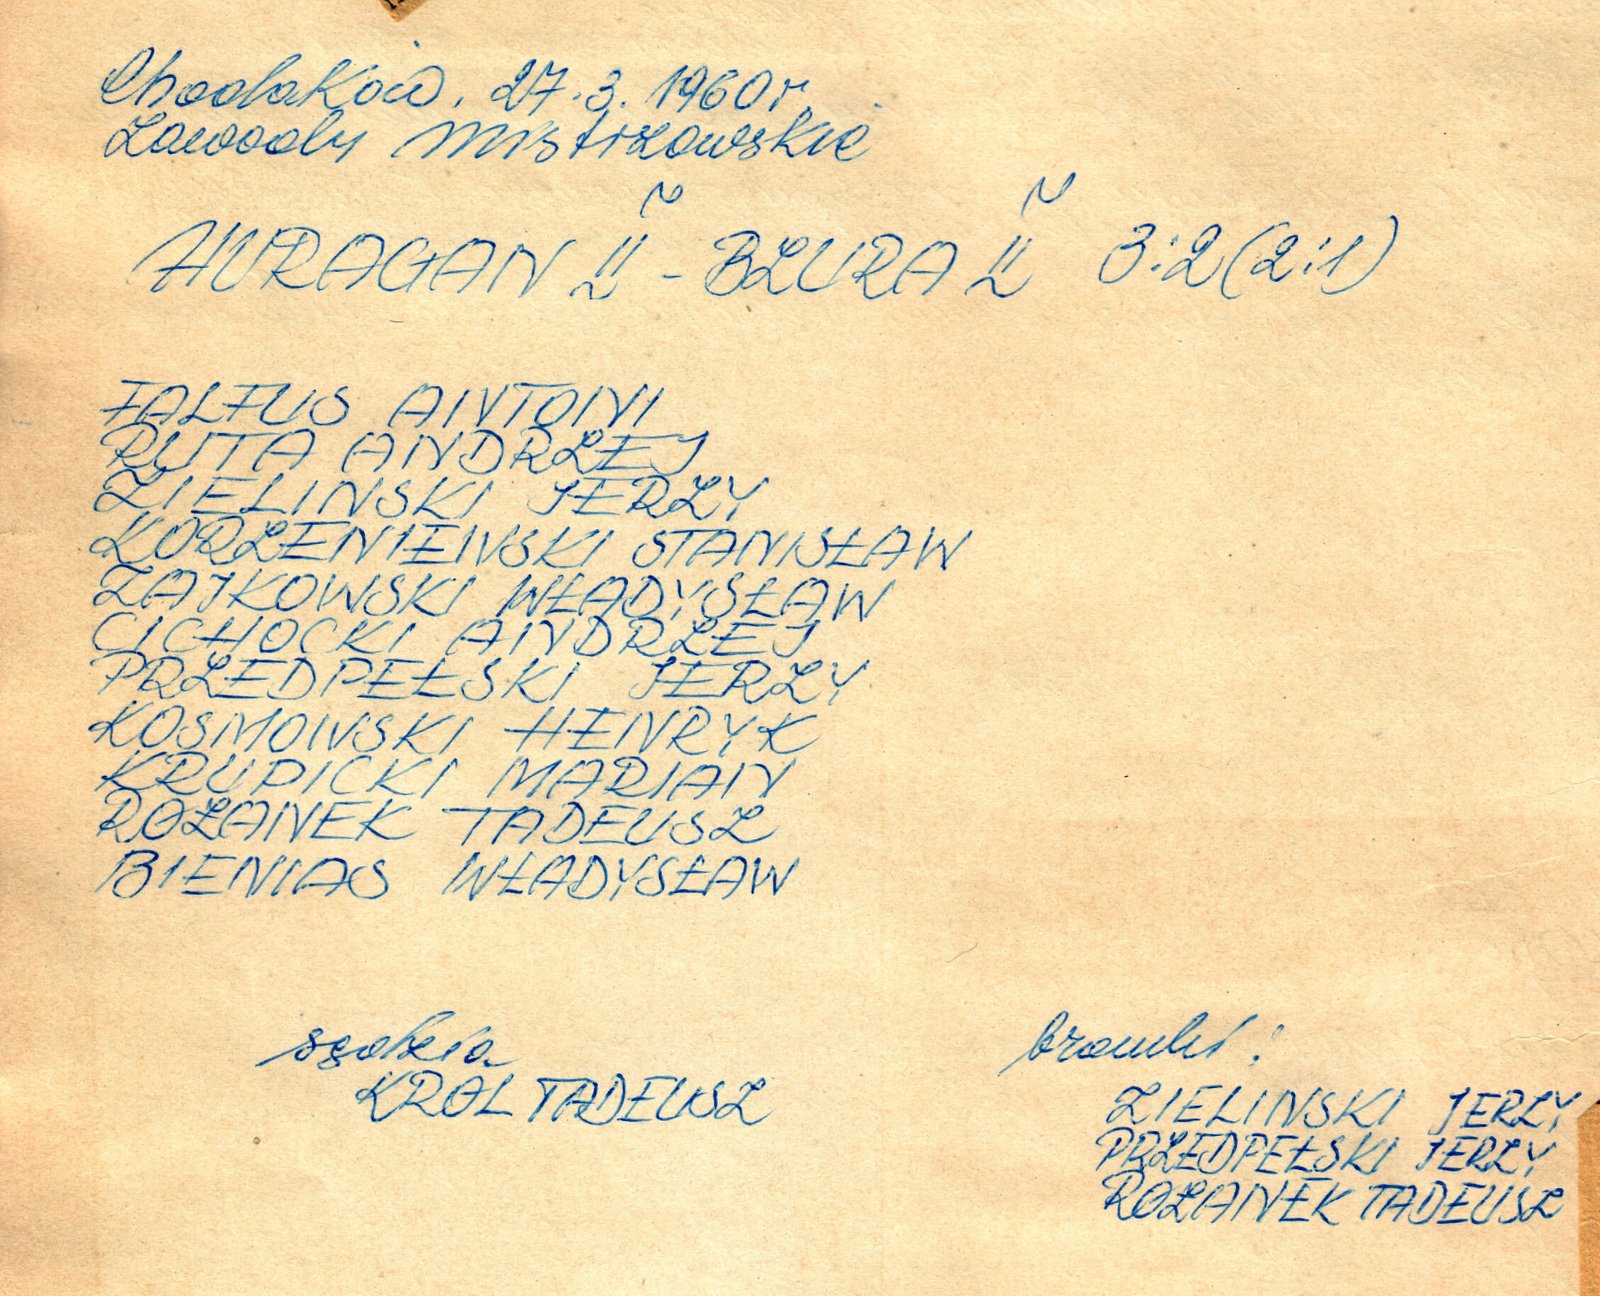 Chodaków. 27.3.1960r.
Zawody Mistrzowskie
HURAGAN II - BZURA II 3:2 (2:1)
FALFUS ANTONI
RUTA ANDRZEJ
ZIELINSKI JERZY
KORZENIEWSKI STANISŁAW
ZAJKOWSKI WŁADYSŁAW
CICHOCKI ANDRZEJ
PRZEDPEŁSKI JERZY
KOSMOWSKI HENRYK
KRUPICKI MARIAN
ROŻANEK TADEUSZ
BIENIAS WŁADYSŁAW
sędzia
KROL TADEUSZ
bramki:
ZIELINSKI JERZY
PRZEDPEŁSKI JERZY
ROŻANEK TADEUSZ